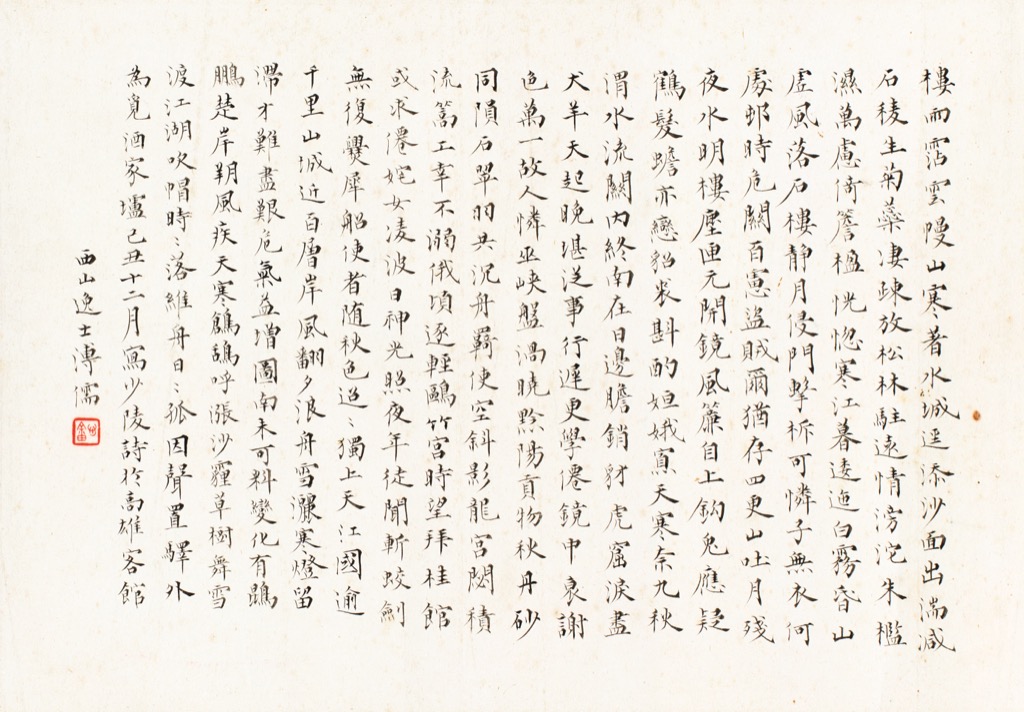 樓雨霑雲幔山寒著水城逕添沙面出湍減
石稜生菊蘂凄疎放松林駐遠情滂沱朱檻
濕萬慮倚簷楹恍惚寒江暮逶迤白霧昏山
虛風落石樓靜月侵門擊柝可憐子無衣何
處邨時危關百慮盜賊爾猶存四更山吐月殘
夜水明樓塵匣元開鏡風簾自上鈎兔應疑
鶴髮蟾亦戀貂裘斟酌姮娥寡天寒奈九秋
渭水流關內終南在日邊膽銷豺虎窟淚盡
犬羊天起晚堪從事行遲更學僊鏡中衰謝
色萬一故人憐巫峽盤渦曉黔陽貢物秋丹砂
同隕石翠羽共沉舟羇使空斜影龍宮閟積
流篙工幸不溺俄頃逐輕鷗竹宮時望拜桂館
或求僊姹女凌波日神光照夜年徒聞斬蛟劍
無復爨犀船使者随秋色迢 獨上天江國逾
千里山城近百層岸風翻夕浪舟雪灑寒燈留
滯才難盡艱危氣益增圖南未可料變化有鵾
鵬楚岸朔風疾天寒鶬鴰呼漲沙霾草樹舞雪
渡江湖吹帽時〻落維舟日〻孤因聲置驛外
為覓酒家壚己丑十二月寫少陵詩於高雄客館
西山逸士溥儒
心畬